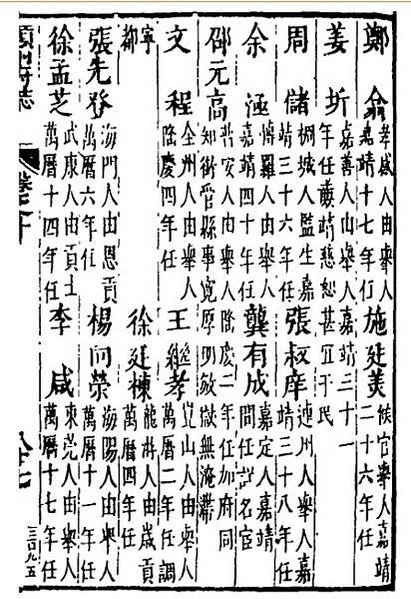 鄭翁 孝感人由舉人嘉靖十七年任 施廷美 候官舉人嘉靖二十六年任
姜圻 嘉善人由舉人嘉靖三十一年任靖慈恕甚宜于民
周儲 桐城人監生嘉靖三十六年任 張叔庠 連州人舉人嘉靖三十八年任
余涵 博羅人由舉人嘉靖四十年任 龔有成 嘉定人嘉靖間任詳名宦
邵元高 新安人由舉人隆慶二年任加府同知銜管縣事寬厚明敏獄無淹滯
文程 全州人由舉人隆慶四年任 王繼孝 崑山人由舉人萬曆二年任調
寧都 徐廷棟 龍游人由歲貢萬曆四年任
張先登 海門人由恩貢萬曆六年任 楊向榮 海陽人由舉人萬曆十一年任
徐孟芝 武康人由貢士萬曆十四年任 李咸 東莞人由舉人萬曆十七年任
州府志 卷之十 八十七
三〇九五